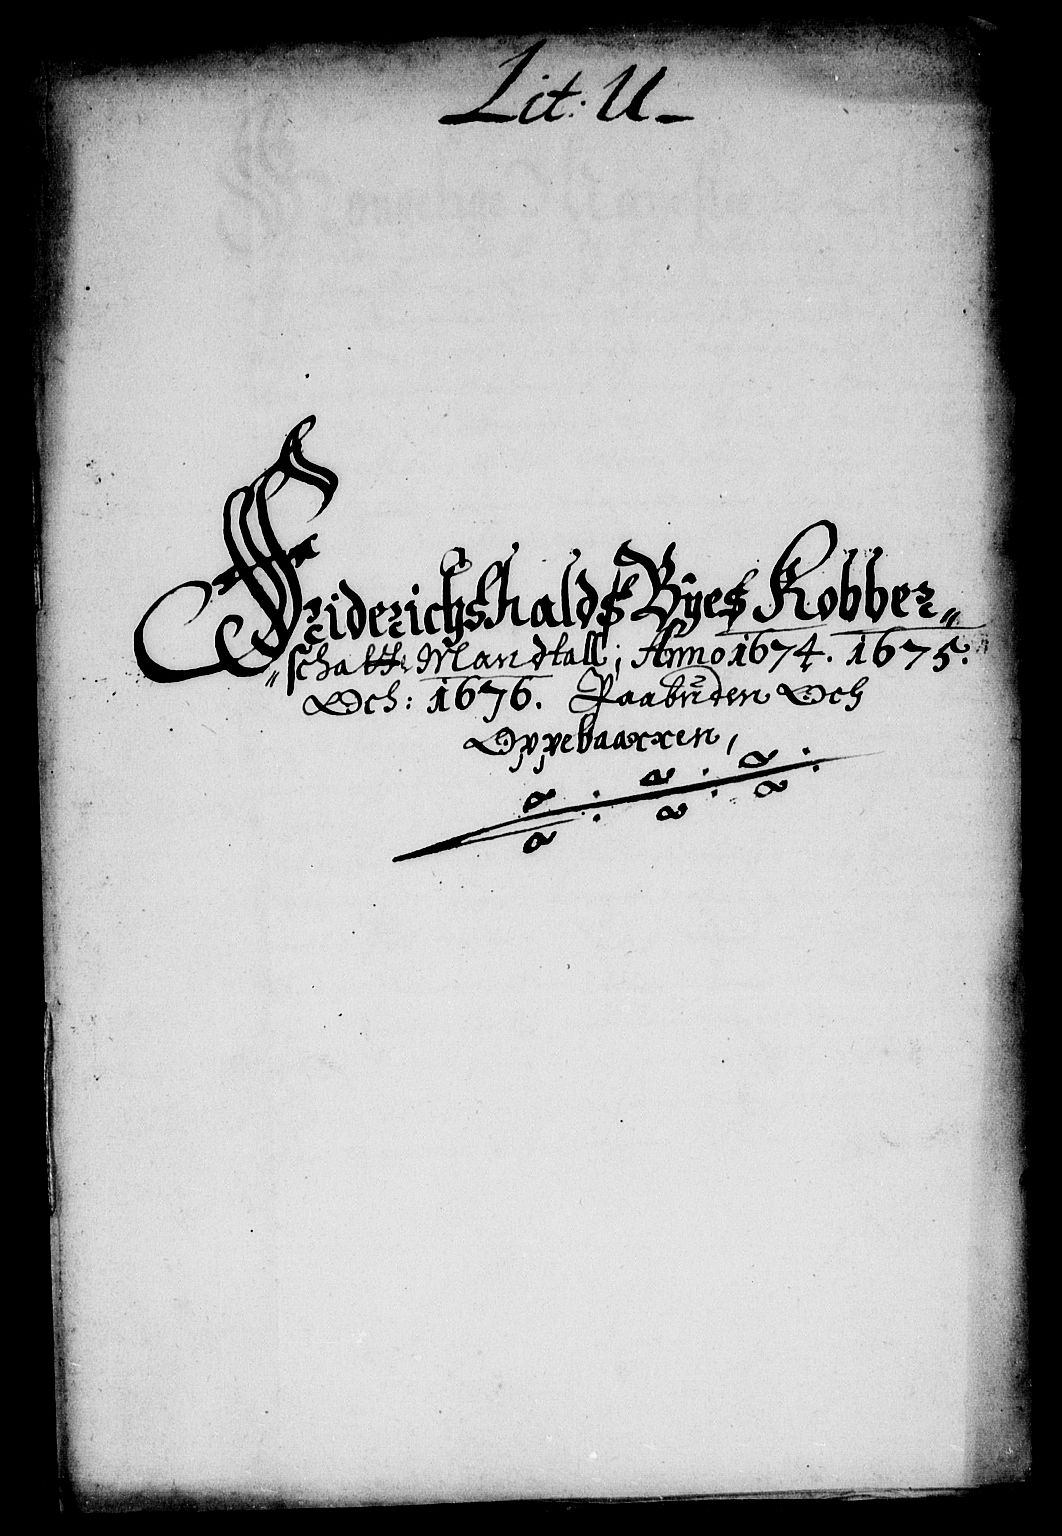 Lit: U
Friderichshalds Byes Kobber„
„schatts Mandtall; Anno 1674. 1675.
Och: 1676. Paabuden Och
Oppebaarren,